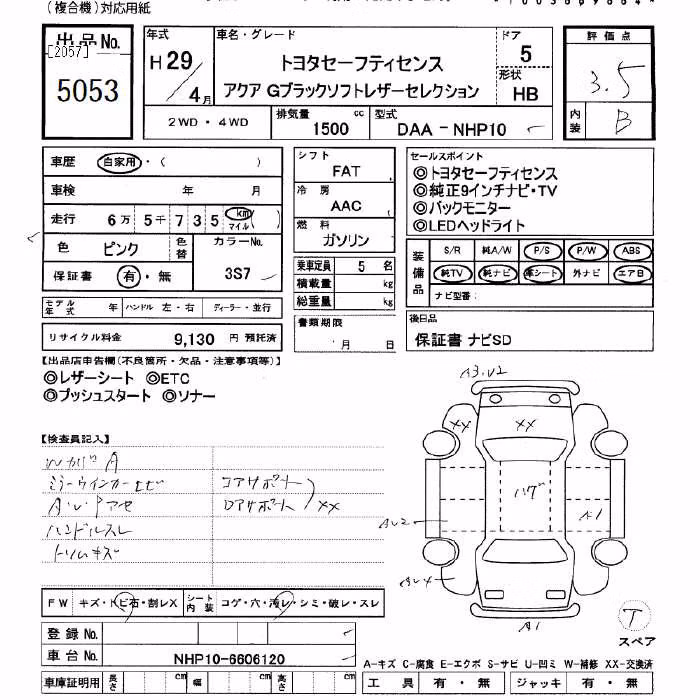 (複合機)対応用紙
出品No.
[2057]
5053
年式
H 29 / 4 月
車名・グレード
トヨタセーフティセンス
アクア Gブラックソフトレザーセレクション
ドア
5
形状
HB
評価点
3.5
内装
B
2WD・4WD
排気量
1500 cc
型式
DAA-NHP10
車歴 自家用・( )
車検 年 月
走行 6万 5千 7 3 5 km マイル
色 ピンク 色替 カラーNo.
3S7
保証書 有・無
モデル年式 年 ハンドル 左・右 ディーラー・並行
リサイクル料金 9,130 円 預託済
シフト
FAT
冷房
AAC
燃料
ガソリン
乗車定員 5 名
積載量 kg
総重量 kg
書類期限
月 日
セールスポイント
◎トヨタセーフティセンス
◎純正9インチナビ・TV
◎バックモニター
◎LEDヘッドライト
装備品
S/R 純A/W P/S P/W ABS
純TV 純ナビ 革シート 外ナビ エアB
ナビ型番:
後日品
保証書 ナビSD
【出品店申告欄(不良箇所・欠品・注意事項等)】
◎レザーシート ◎ETC
◎プッシュスタート ◎ソナー
【検査員記入】
Wガバ A
ミラーウインカーヒビ コアサポート
A・U・Pアセ ロアサポート XX
ハンドルスレ
トリムキズ
A3・U2
XX XX
ハゲ
AU2 A1
AU4
A1
T
スペア
FW キズ・トビ石・割レX シート内装 コゲ・穴・汚レ・シミ・破レ・スレ
登録No.
車台No. NHP10-6606120
車庫証明用 長さ cm 幅 cm 高さ cm
A-キズ C-腐食 E-エクボ S-サビ U-凹ミ W-補修 XX-交換済
工具 有・無 ジャッキ 有・無